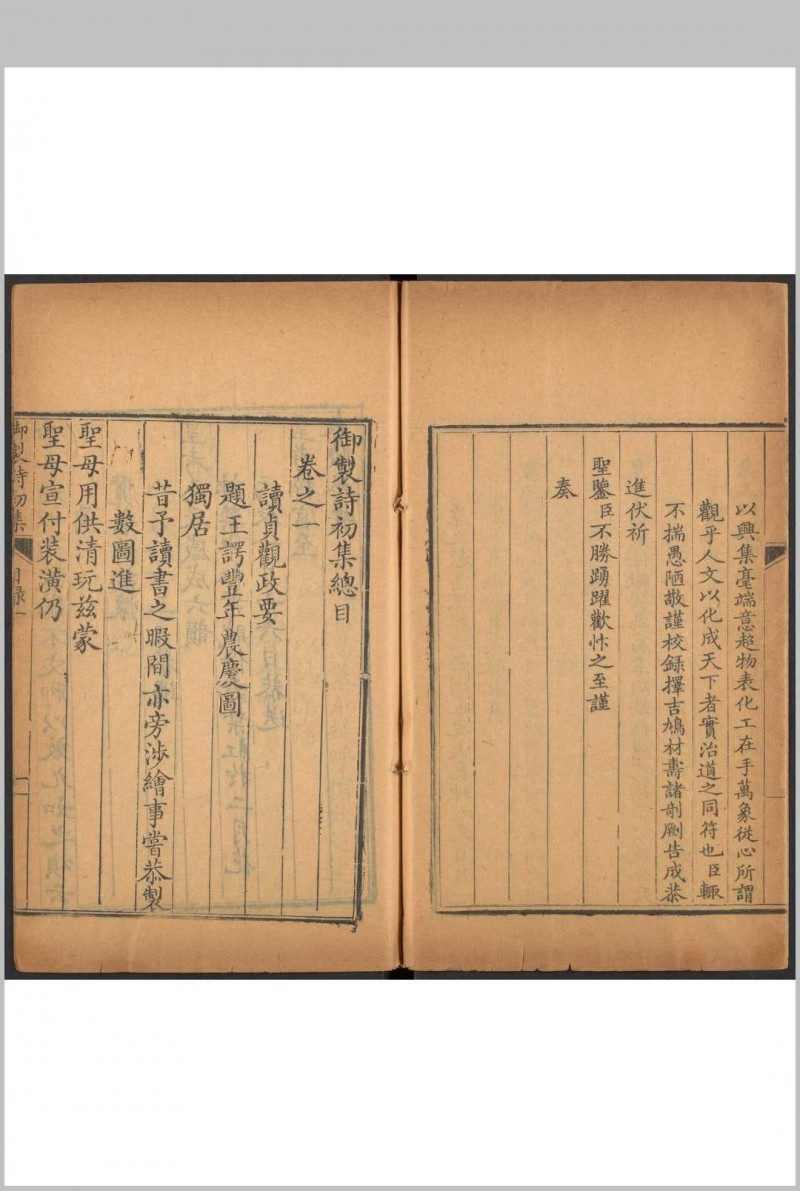 以興集毫端意超物表化工在手萬象從心所謂
觀乎人文以化成天下者實治道之同符也臣輙
不揣愚陋敬謹校録擇吉鳩材壽諸剞劂告成恭
進伏祈
聖鑒臣不勝踴躍歡忭之至謹
奏
御製詩初集總目
卷之一
讀貞觀政要
題王諤豐年農慶圖
獨居
昔予讀書之暇間亦旁涉繪事嘗恭製
數圖進
聖母用供清玩兹蒙
聖母宣付装潢仍
御製詩初集
目録一